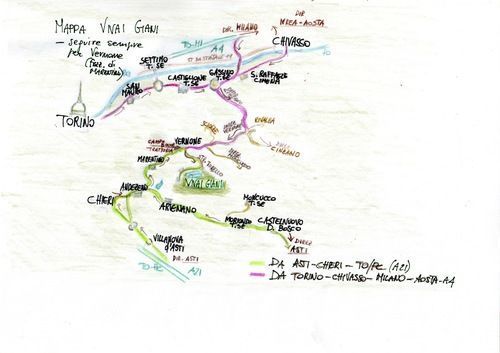 MAPPA VIVAI GIANI
- seguire sempre
per Vernone
(fraz. di
MARENTINO)
DIR. MILANO
DIR
IVREA-AOSTA
CHIVASSO
TO-MI
A4
PO
SETTIMO
T.SE
CASTIGLIONE
T.SE
GASSINO
T.SE
S. RAFFAELE
CIMENA
SAN
MAURO
TORINO
VERNONE
CINZANO
MARENTINO
VIVAI GIANI
ANDEZENO
CHIERI
ARIGNANO
MONCUCCO
T.SE
MORIONDO
T.SE
CASTELNUOVO
D. BOSCO
VILLANOVA
d'ASTI
DIREZ
ASTI
TO-PC
A21
DIR. ASTI
DA ASTI-CHIERI-TO/PC (A21)
DA TORINO-CHIVASSO-MILANO-AOSTA-A4